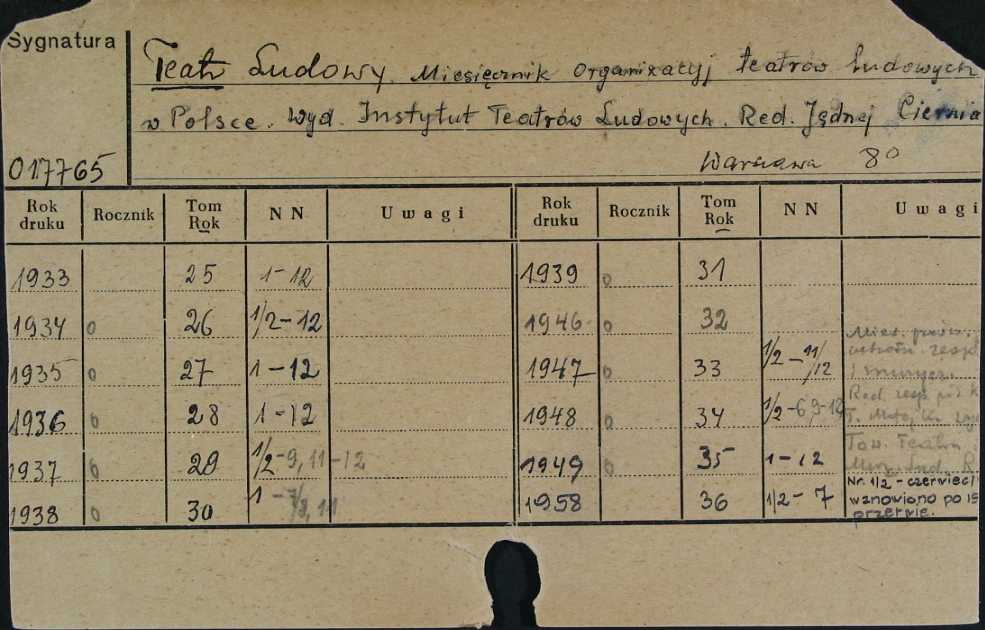 Sygnatura
Teatr Ludowy. Miesięcznik Organizacyj teatrów ludowych
w Polsce. Wyd. Instytut Teatrów Ludowych. Red. Jędrzej Ciernia
Warszawa 8°
017765
Rok druku Rocznik Tom Rok N N Uwagi Rok druku Rocznik Tom Rok N N Uwagi
1933 25 1-12 1939 0 31
1934 0 26 1/2-12 1946 0 32
1935 0 27 1-12 1947 0 33 1/2-11/12
1936 0 28 1-12 1948 0 34 1/2-6,9-12
1937 0 29 1/2-9, 11-12 1949 0 35 1-12
1938 0 30 1-7/8, 11 1958 36 1/2-7
Red. resp.
Tow. Teatru
Nr. 1/2 - czerwiec/
wznowiono po 15
przerwie.